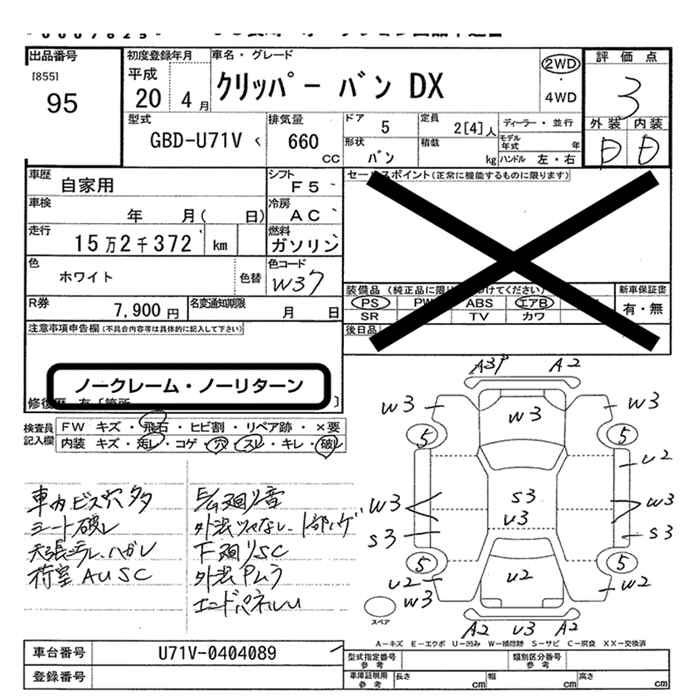 出品番号
[855]
95
初度登録年月
平成
20 4 月
車名・グレード
クリッパー バン DX
2WD
・
4WD
評価点
3
外装 内装
D D
型式
GBD-U71V
排気量
660
CC
ドア 5
定員 2[4]人
形状
バン
積載
kg
ディーラー・並行
モデル年式 年
ハンドル 左・右
車歴
自家用
シフト
F5
車検
年 月( 日)
冷房
AC
走行
15万2千372 km
燃料
ガソリン
色
ホワイト
色替
色コード
W37
R券
7,900 円
名変通知期限
月 日
セールスポイント(正常に機能するものに限ります)
装備品
PS ABS エアB
SR TV カワ
後日品
新車保証書
有・無
注意事項申告欄(不具合内容等は具体的に記入して下さい)
ノークレーム・ノーリターン
検査員記入欄
FW キズ・飛石・ヒビ割・リペア跡・×要
内装 キズ・汚レ・コゲ・穴・スレ・キレ・破レ
車内ビス穴多
シート破レ
天張汚レ、ハガレ
荷室AUSC
下廻りSC
外装PΑラ
A2
W3
W3
W3
5
5
U2
W3
S3
U3
W3
S3
S3
5
5
U2
W3
U2
W2
スペア
A2 U3 A2
A-キズ E-エクボ U-凹み W-補修跡 S-サビ C-腐食 XX-交換済
車台番号
U71V-0404089
登録番号
型式指定番号
参考
類別区分番号
参考
車庫証明用
参考
長さ cm
幅 cm
高さ cm